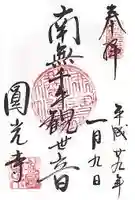 奉拝
平成廿九年
一月九日
南無千手観世音
圓光寺